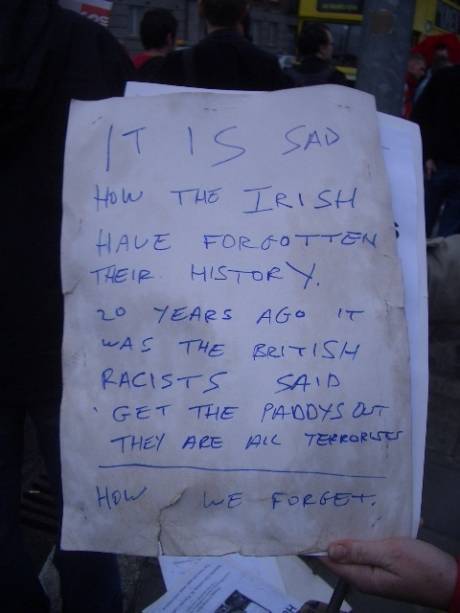 IT IS SAD
HOW THE IRISH
HAVE FORGOTTEN
THEIR HISTORY.
20 YEARS AGO IT
WAS THE BRITISH
RACISTS SAID
GET THE PADDYS OUT
THEY ARE ALL TERRORISTS
HOW WE FORGET.